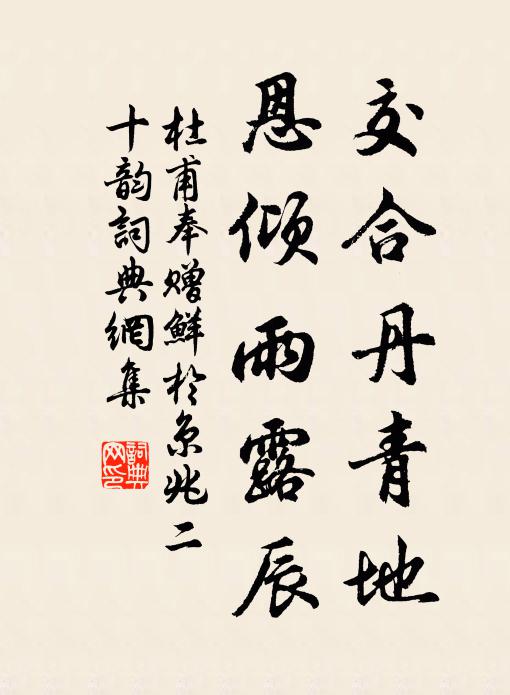 交合丹青地
恩倾雨露辰
杜甫奉赠鲜於京兆二
十韵词典网集
詞典網印